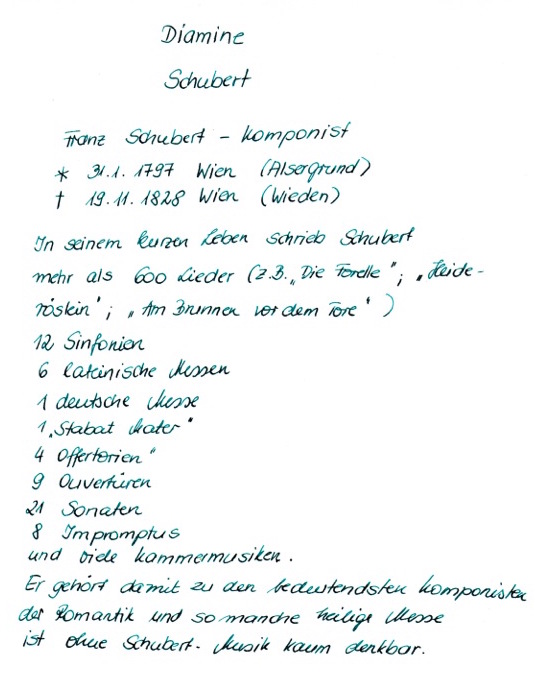 Diamine
Schubert
Franz Schubert - Komponist
* 31.1.1797 Wien (Alsergrund)
† 19.11.1828 Wien (Wieden)
In seinem kurzen Leben schrieb Schubert
mehr als 600 Lieder (z.B. „Die Forelle"; „Heide-
röslein"; „Am Brunnen vor dem Tore")
12 Sinfonien
6 lateinische Messen
1 deutsche Messe
1 „Stabat Mater"
4 Offertorien"
9 Ouvertüren
21 Sonaten
8 Impromptus
und viele Kammermusiken.
Er gehört damit zu den bedeutendsten Komponisten
der Romantik und so manche heilige Messe
ist ohne Schubert-Musik kaum denkbar.